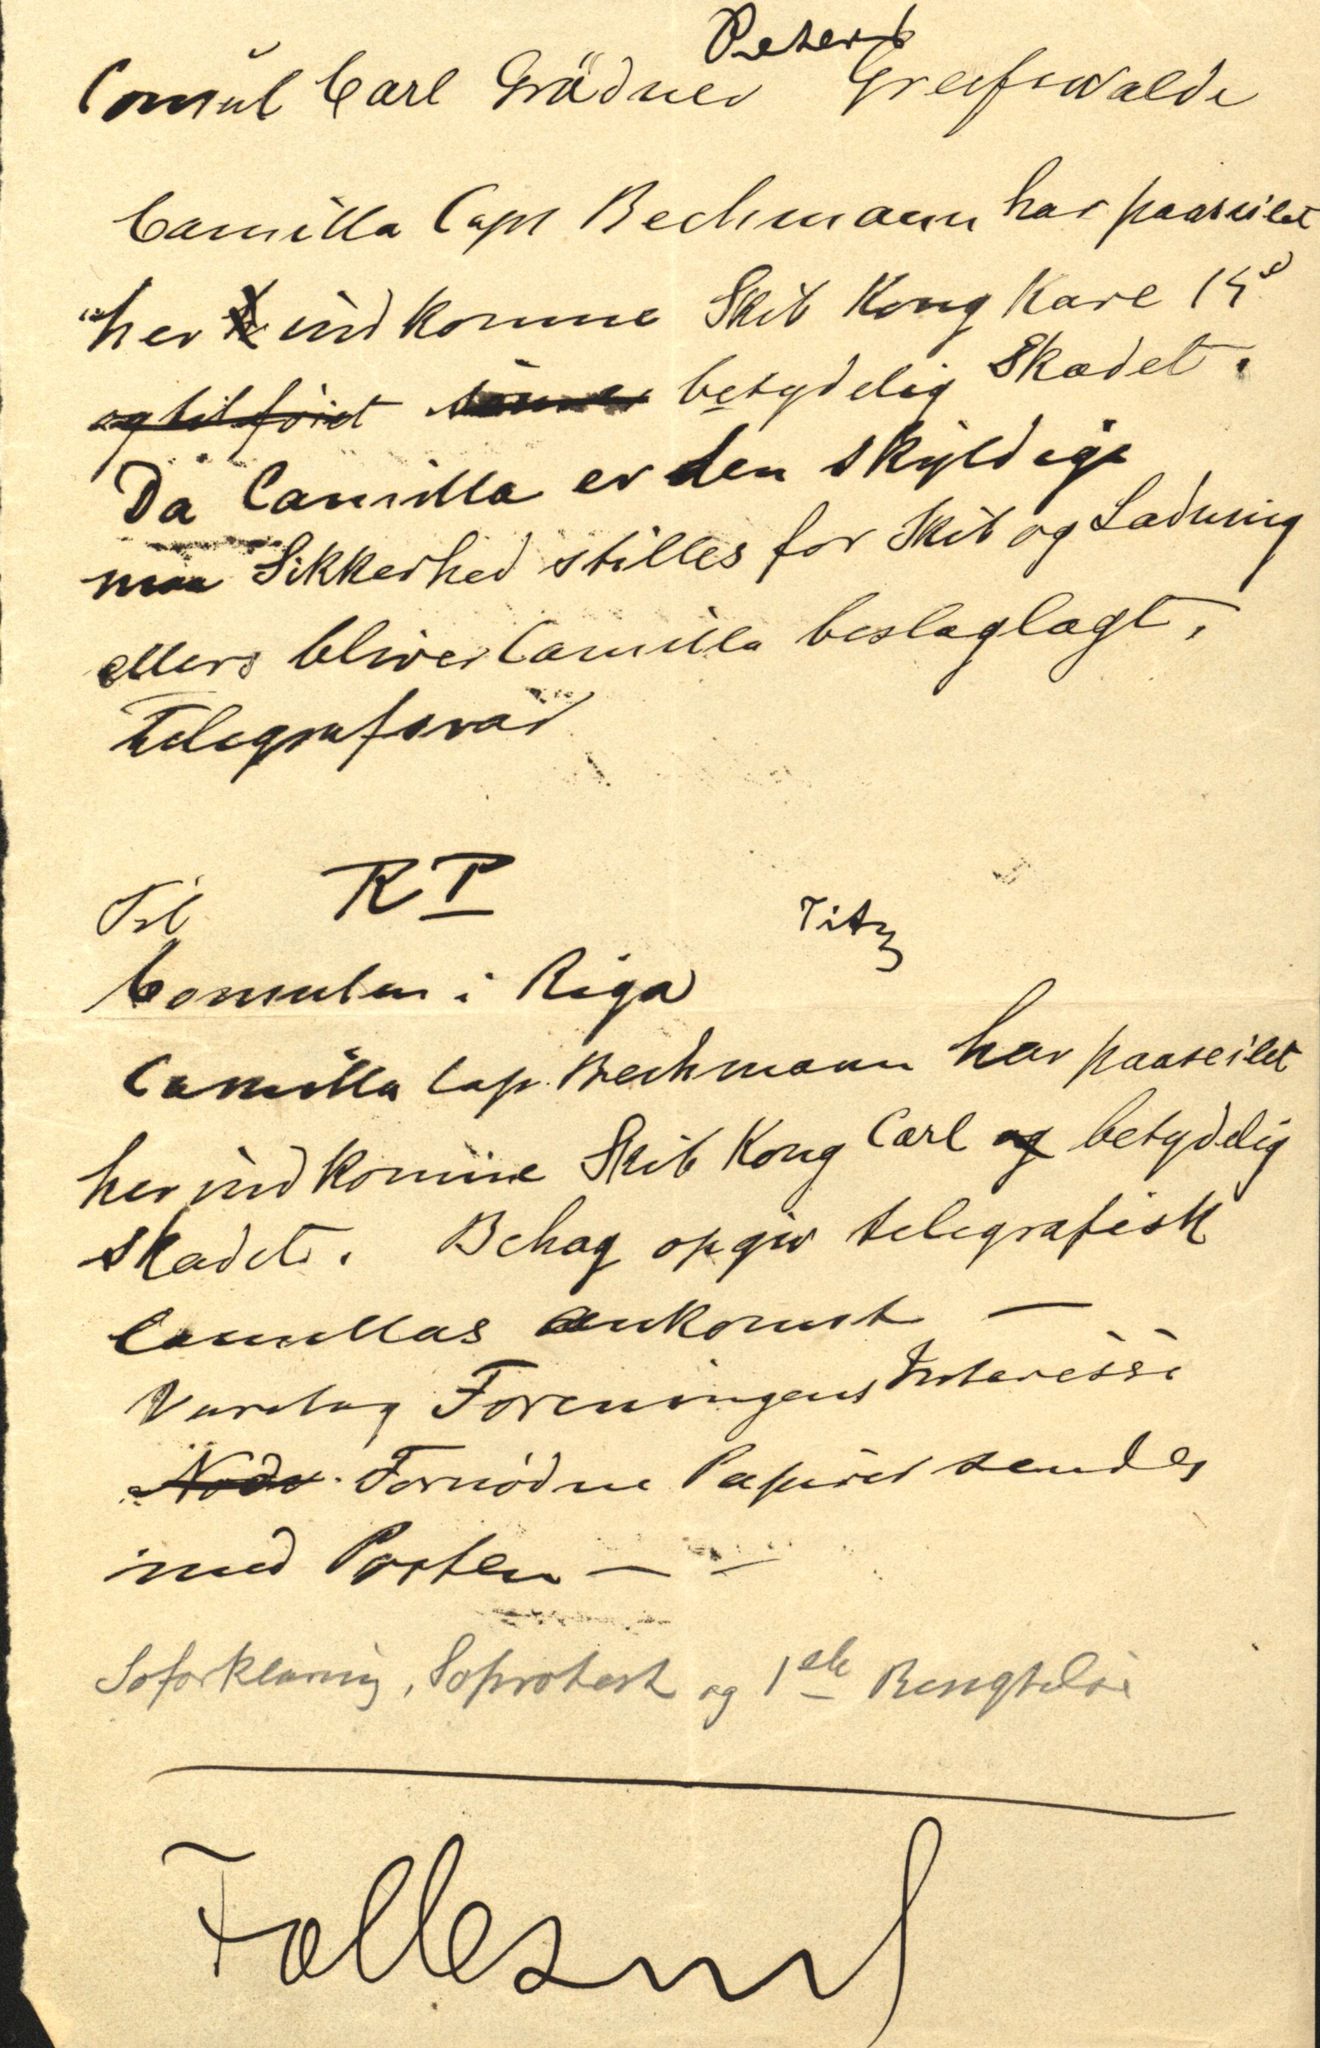 Peters
Consul Carl Grädner Greifswalde
Camilla Capt Beckmann har paaseilet
her indkomne Skib Kong Karl 15de
og tilføiet betydelig Skadet.
Da Camilla er den skyldige
maa Sikkerhed stilles for Skib og Ladning
ellers bliver Camilla beslaglagt.
Telegrafsvar
Til RP Titz
Consulen i Riga
Camilla Cap. Beckmann har paaseilet
her indkomne Skib Kong Carl og betydelig
skadet. Behag opgiv telegrafisk
Camillas Ankomst —
Varetag Foreningens Interesse
Nødv. Fornødne Papirer sendes
med Posten — -
Søforklaring, Søprotest og 1ste
Fællesnul